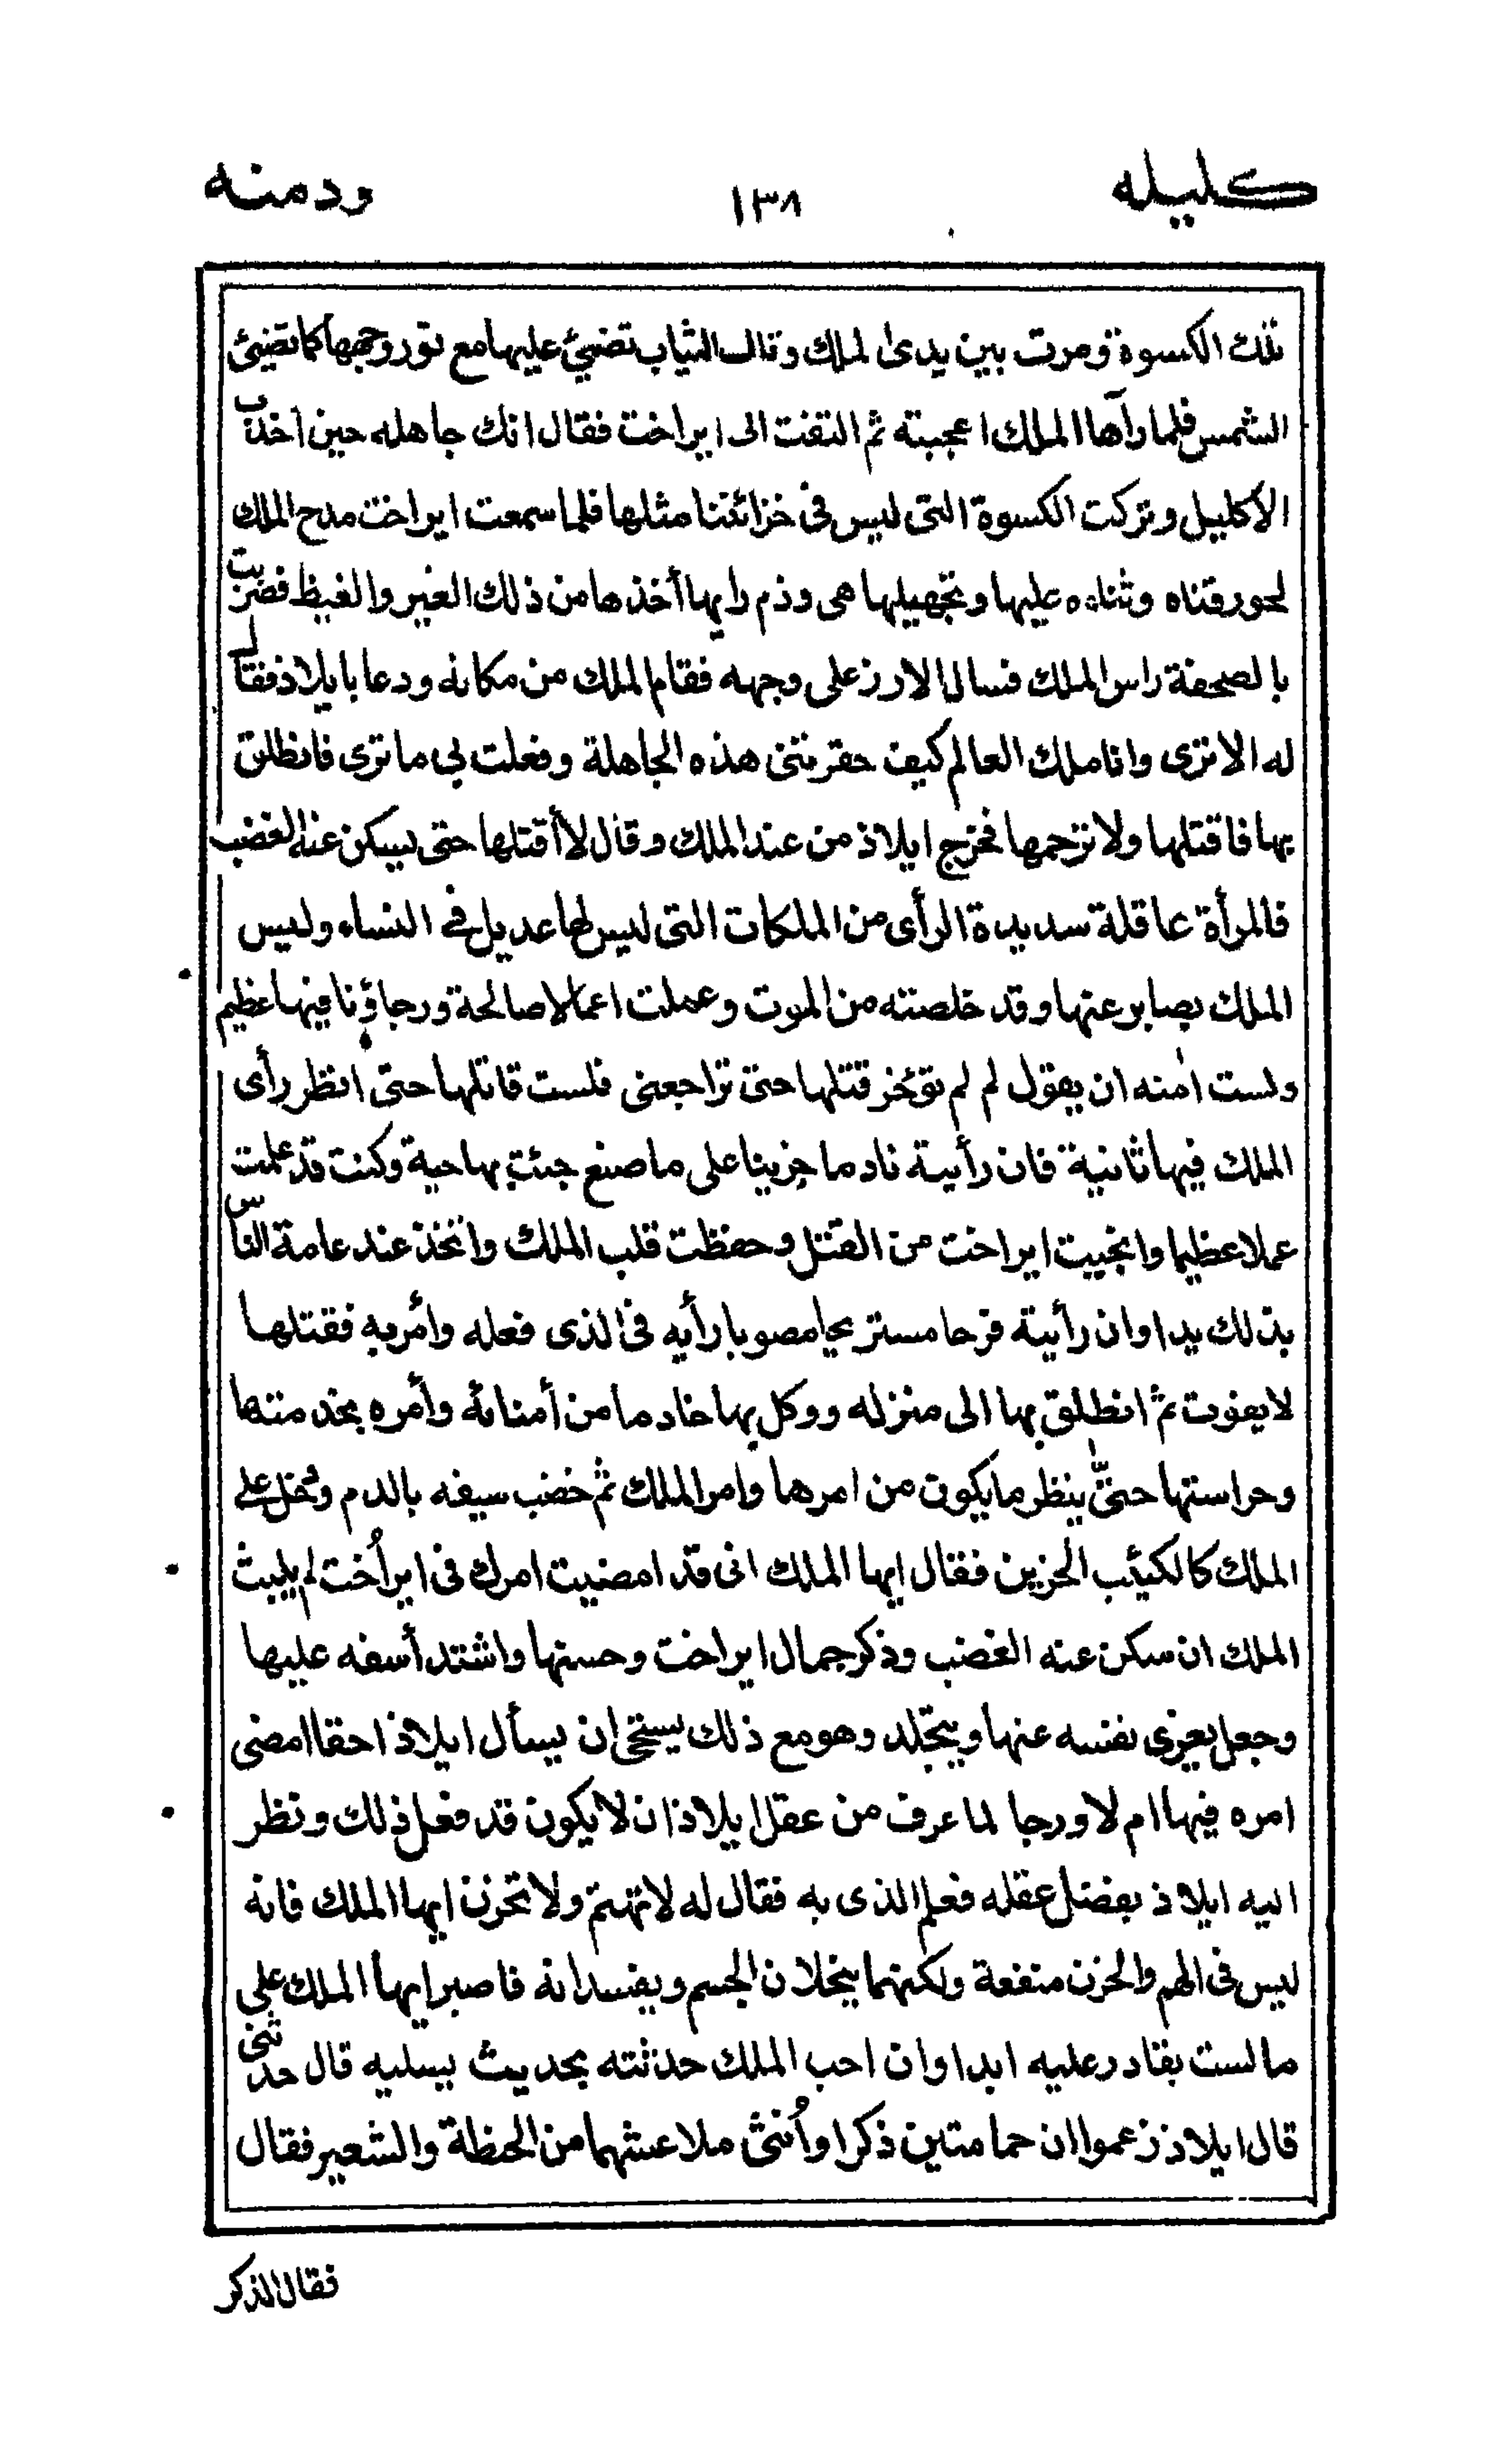 كليله ١٣٨ ودمنه
تلك الكسوة ومرت بين يدى الملك وتلك الثياب تضيئ عليها مع نور وجهها كما تضيئ
الشمس فلما رآها الملك اعجبته ثم التفت الى ايراخت فقال انك جاهله حين اخذت
الاكليل وتركت الكسوة التى ليس فى خزائننا مثلها فلما سمعت ايراخت مدح الملك
لحورقناه وثناءه عليها وتجهيلها هى وذم رايها أخذها من ذلك الغير والغيظ فضربت
بالصحفة راس الملك فسال الارز على وجهه فقام الملك من مكانه ودعا بايلاذ فقال
له الا ترى وانا ملك العالم كيف حقرتنى هذه الجاهلة وفعلت بى ما ترى فانطلق
بها فاقتلها ولا ترحمها فخرج ايلاذ من عند الملك وقال لا أقتلها حتى يسكن عنه الغضب
فالمرأة عاقلة سديدة الرأى من الملكات التى ليس لها عديل فى النساء وليس
الملك بصابر عنها وقد خلصته من الموت وعملت اعمالا صالحة ورجاؤنا فيها عظيم
ولست امنه ان يقول لم لم تؤخر قتلها حتى تراجعنى فلست قاتلها حتى انظر رأى
الملك فيها ثانية فان رأيته نادما حزينا على ما صنع جئت بها حية وكنت قد عملت
عملا عظيما وانجيت ايراخت من القتل وحفظت قلب الملك واتخذ عند عامة الناس
بذلك يدا وان رأيته فرحا مستريحا مصوبا رأيه فى الذى فعله وأمر به فقتلها
لا يفوت ثم انطلق بها الى منزله ووكل بها خادما من أمنائه وأمره بخدمتها
وحراستها حتى ينظر ما يكون من امرها وامر الملك ثم خضب سيفه بالدم ودخل على
الملك كالكئيب الحزين فقال ايها الملك انى قد امضيت امرك فى ايراخت لم يلبث
الملك ان سكن عنه الغضب وذكر جمال ايراخت وحسنها واشتد أسفه عليها
وجعل يعزى نفسه عنها ويتجلد وهو مع ذلك يستحى ان يسأل ايلاذ احقا امضى
امره فيها ام لا ورجا لما عرف من عقل ايلاذ ان لا يكون قد فعل ذلك ونظر
اليه ايلاذ بفضل عقله فعلم الذى به فقال له لا تهتم ولا تحزن ايها الملك فانه
ليس فى الهم والحزن منفعة ولكنهما ينحلان الجسم ويفسدانه فاصبر ايها الملك على
ما لست بقادر عليه ابدا وان احب الملك حدثته بحديث يسليه قال حدثنى
قال ايلاذ زعموا ان حمامتين ذكرا وأنثى ملا عشهما من الحنطة والشعير فقال
فقال الذكر